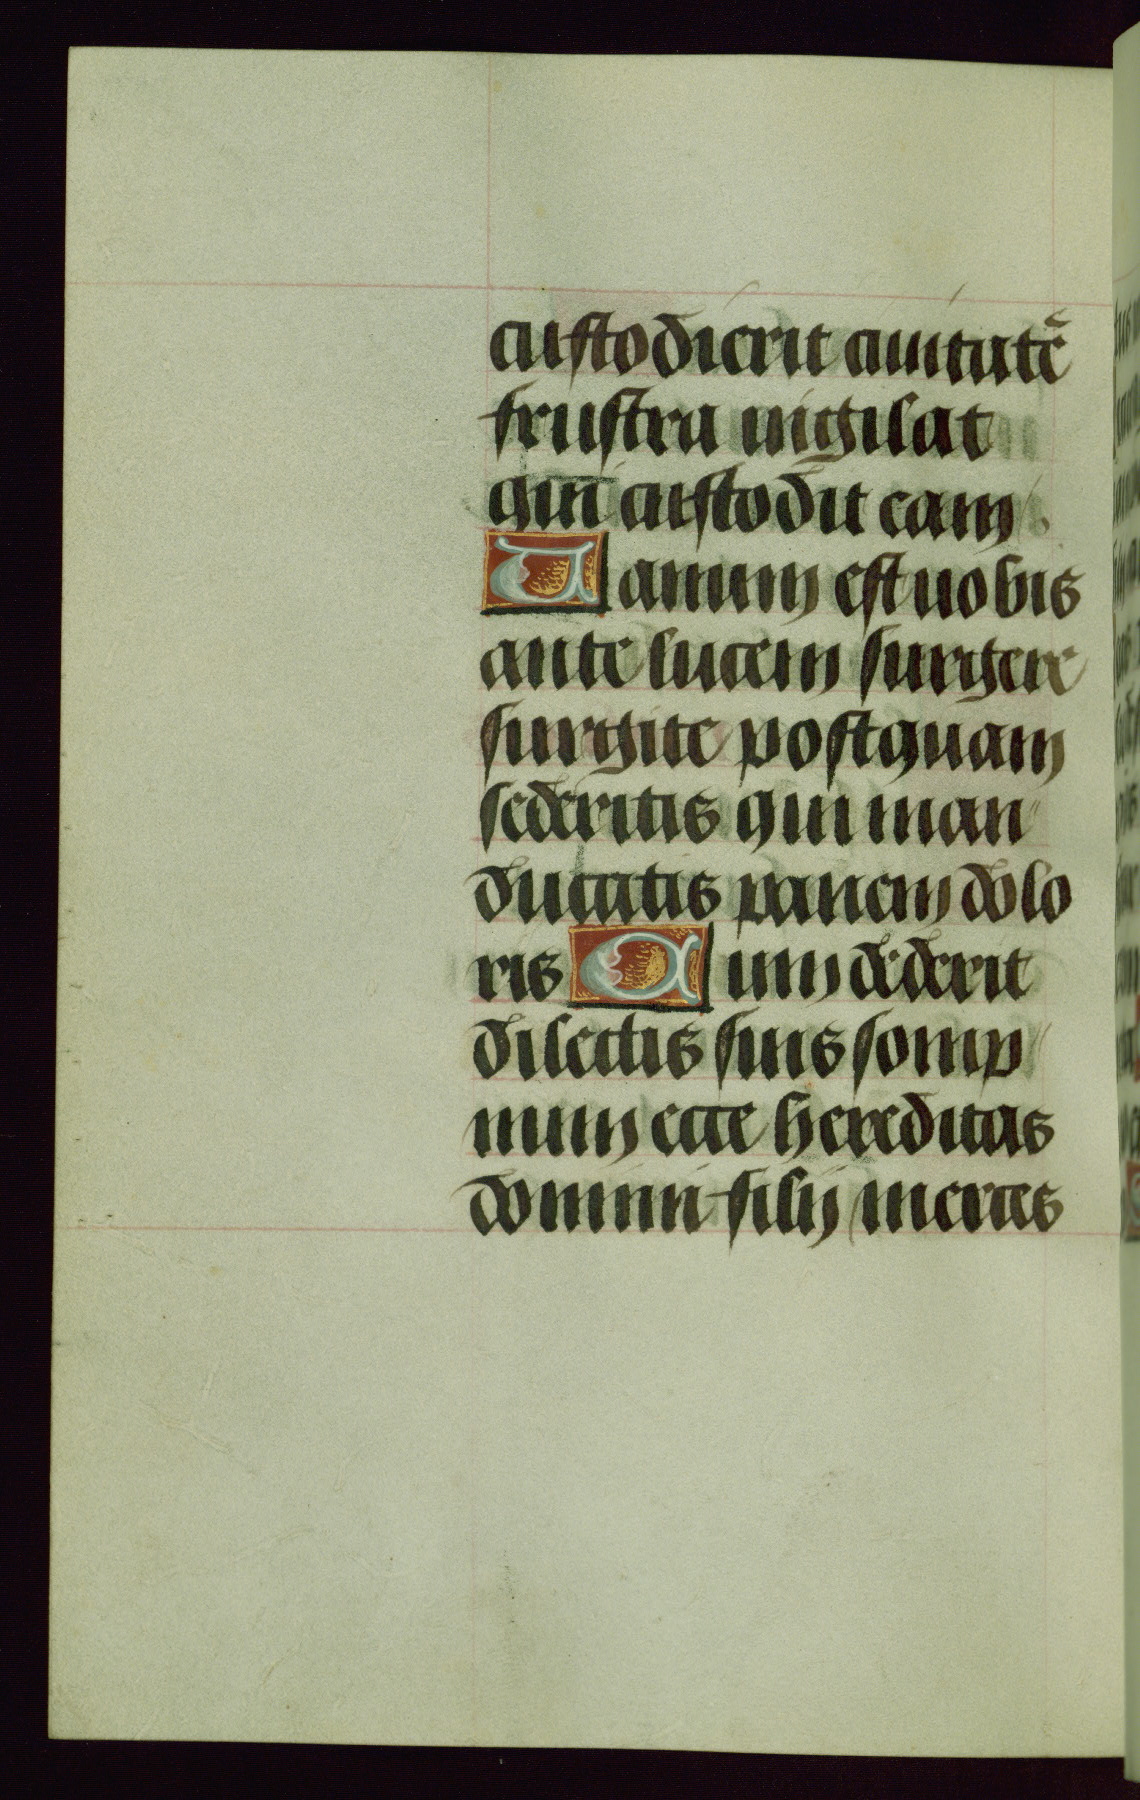 custodierit ciuitatē
frustra uigilat
qui custodit eam
Uanum est uobis
ante lucem surgere
surgite postquam
sederitis qui man
ducatis panem dolo
ris Cum dederit
dilectis suis somp
num ecce hereditas
domini filij merces